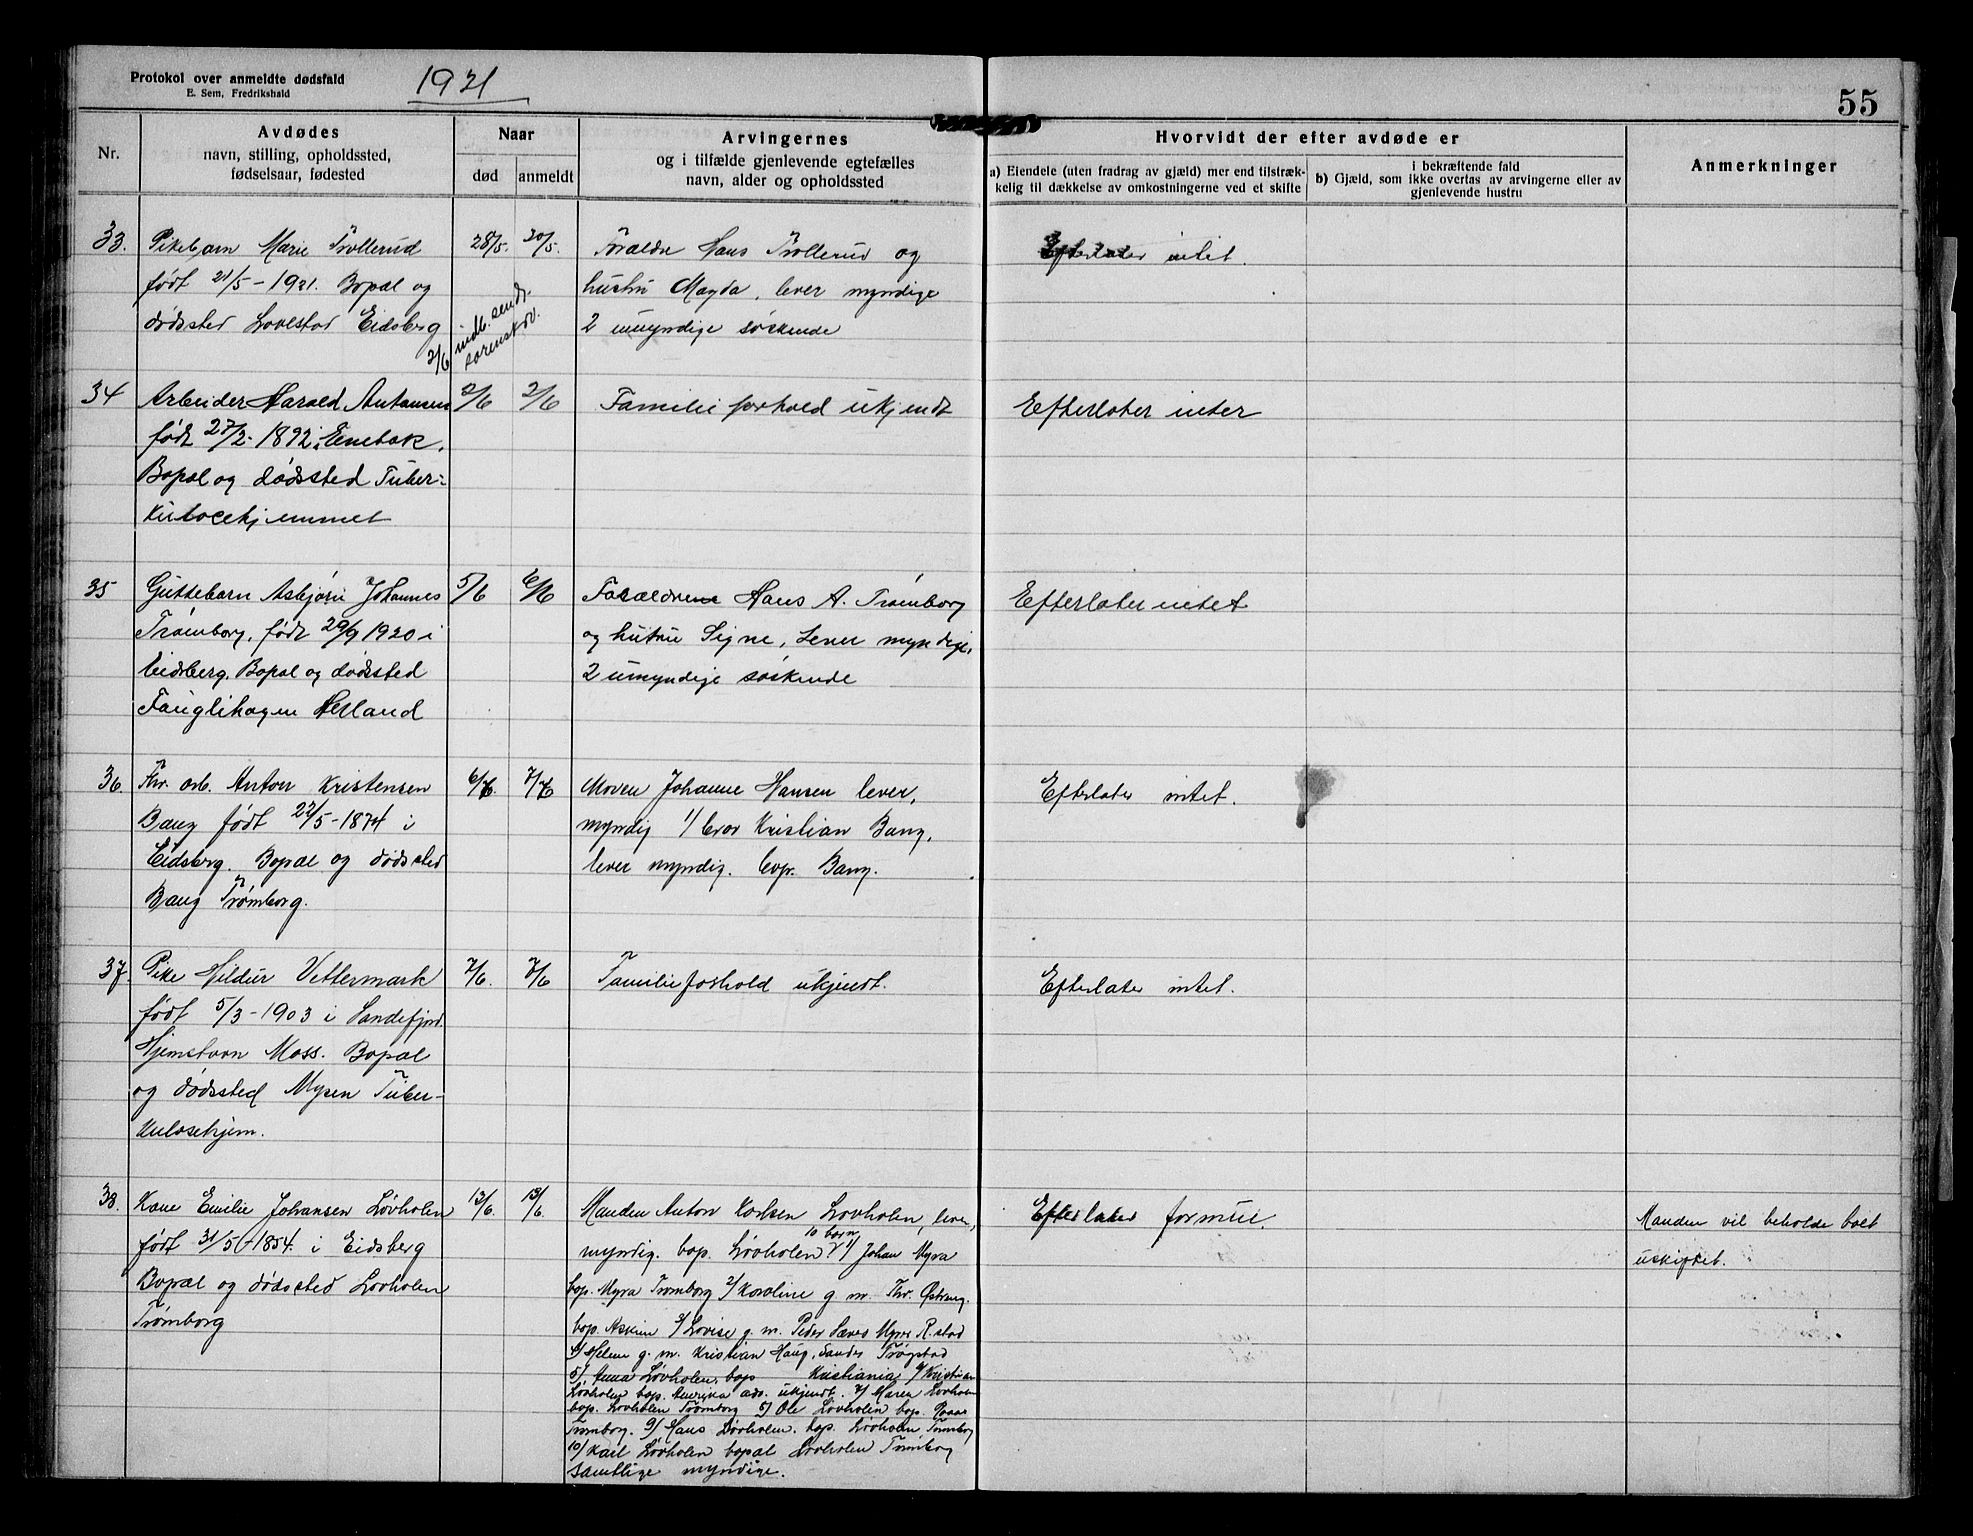 Protokol over anmeldte dødsfald
E. Sem, Fredrikshald
1921
55
Nr.
Avdødes
navn, stilling, opholdssted,
fødselsaar, fødested
Naar
død
anmeldt
Arvingernes
og i tilfælde gjenlevende egtefælles
navn, alder og opholdssted
Hvorvidt der efter avdøde er
a) Eiendele (uten fradrag av gjæld) mer end tilstræk-
kelig til dækkelse av omkostningerne ved et skifte
i bekræftende fald
b) Gjæld, som ikke overtas av arvingerne eller av
gjenlevende hustru
Anmerkninger
33.
Pikebarn Marie Trollerud
født 21/5-1921. Bopæl og
dødssted Lovestad Eidsberg
28/5.
30/5.
2/6 indb. sendt
sorenskr.
Forældre Hans Trollerud og
hustru Magda, lever myndige
2 umyndige søskende
Efterlater intet.
34
Arbeider Harald Antonsen
født 27/2-1892 i Enebak.
Bopæl og dødssted Tuber-
kulosehjemmet
2/6
2/6
Familieforhold ukjendt
Efterlater intet
35
Guttebarn Asbjørn Johannes
Trømborg, født 29/9 1920 i
Eidsberg. Bopæl og dødssted
Fuglihagen Herland
5/6
6/6
Forældrene Hans A. Trømborg
og hustru Signe, Lever myndige,
2 umyndige søskende
Efterlater intet
36.
Fhv. arb. Anton Kristensen
Baug født 22/5-1874 i
Eidsberg. Bopæl og dødssted
Baug Trømborg.
6/6.
7/6
Moren Johanne Hansen lever,
myndig 1/ bror Kristian Baug,
lever myndig. bop. Baug.
Efterlater intet.
37.
Pike Hildur Vettermark
født 5/3-1903 i Sandefjord.
Hjemstavn Moss. Bopæl
og dødssted Mysen Tuber-
kulosehjem.
7/6.
7/6
Familieforhold ukjendt.
Efterlater intet.
38.
Kone Emilie Johansen Løvholen
født 31/5-1854. i Eidsberg
Bopæl og dødssted Løvholen
Trømborg
13/6.
13/6.
Manden Anton Karlsen Løvholen, lever,
myndig. bop. Løvholen 10 barn 1/ Johan Myra
bop. Myra Trømborg 2/ Karoline g. m. Thv. Østreng.
bop. Askim 3/ Lovise g. m. Peder Sæves Myrer R.stad
4/ Helene g. m. Kristian Haug, Sandes Trøgstad
5/ Anna Løvholen, bop. Kristiania 6/ Kristian
Løvholen bop. Amerika adr. ukjendt. 7/ Maren Løvholen
bop. Løvholen Trømborg 8/ Ole Løvholen bop.
Trømborg. 9/ Hans Løvholen. bop. Løvholen Trømborg
10/ Karl Løvholen bopæl Løvholen Trømborg
samtlige myndige.
Efterlater formue.
Manden vil beholde boet
uskiftet.